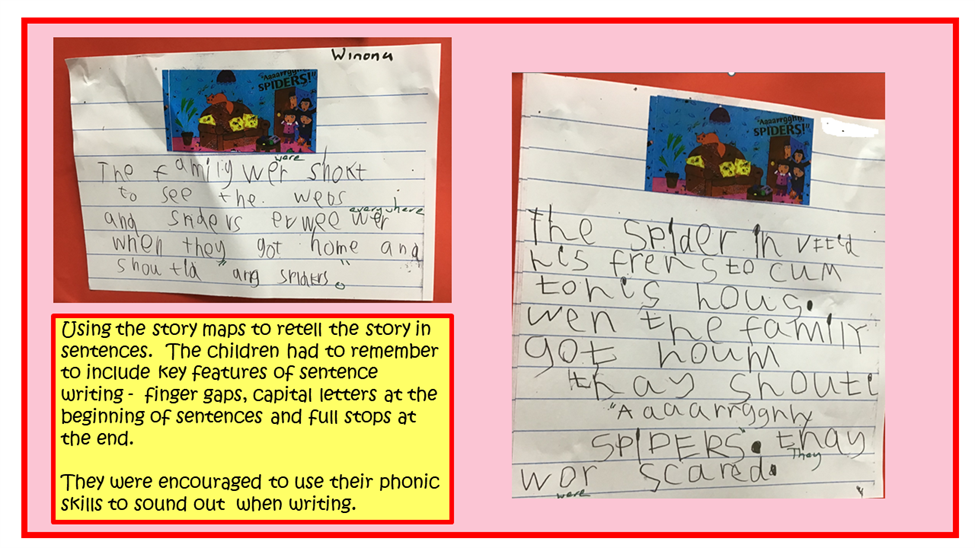 Winona
"Aaaarrgghh!
SPIDERS!"
were
The family wer shokt
to see the webs
everywhere
and sniders erwee wer
when they got home and
shoutid "ang spiders"
Using the story maps to retell the story in
sentences. The children had to remember
to include key features of sentence
writing - finger gaps, capital letters at the
beginning of sentences and full stops at
the end.
They were encouraged to use their phonic
skills to sound out when writing.
"Aaaarrgghh!
SPIDERS!"
the spider in vitid
his frens to cum
to his hous.
wen the family
got houm
thay shouti
"Aaaaarrygnhy
SPIDERS. thay
They
wor scared.
were